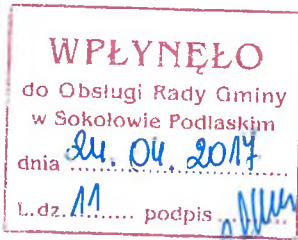 WPŁYNĘŁO
do Obsługi Rady Gminy
w Sokołowie Podlaskim
dnia 24. 04. 2017
L.dz. 11 podpis